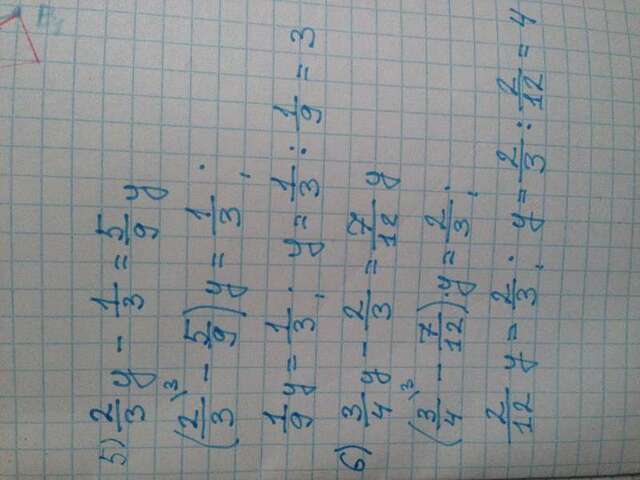 5) 2/3 y - 1/3 = 5/9 y
(2/3 \3 - 5/9) y = 1/3 ;
1/9 y = 1/3 ; y = 1/3 : 1/9 = 3
6) 3/4 y - 2/3 = 7/12 y
(3/4 \3 - 7/12) · y = 2/3 ;
2/12 y = 2/3 ; y = 2/3 : 2/12 = 4